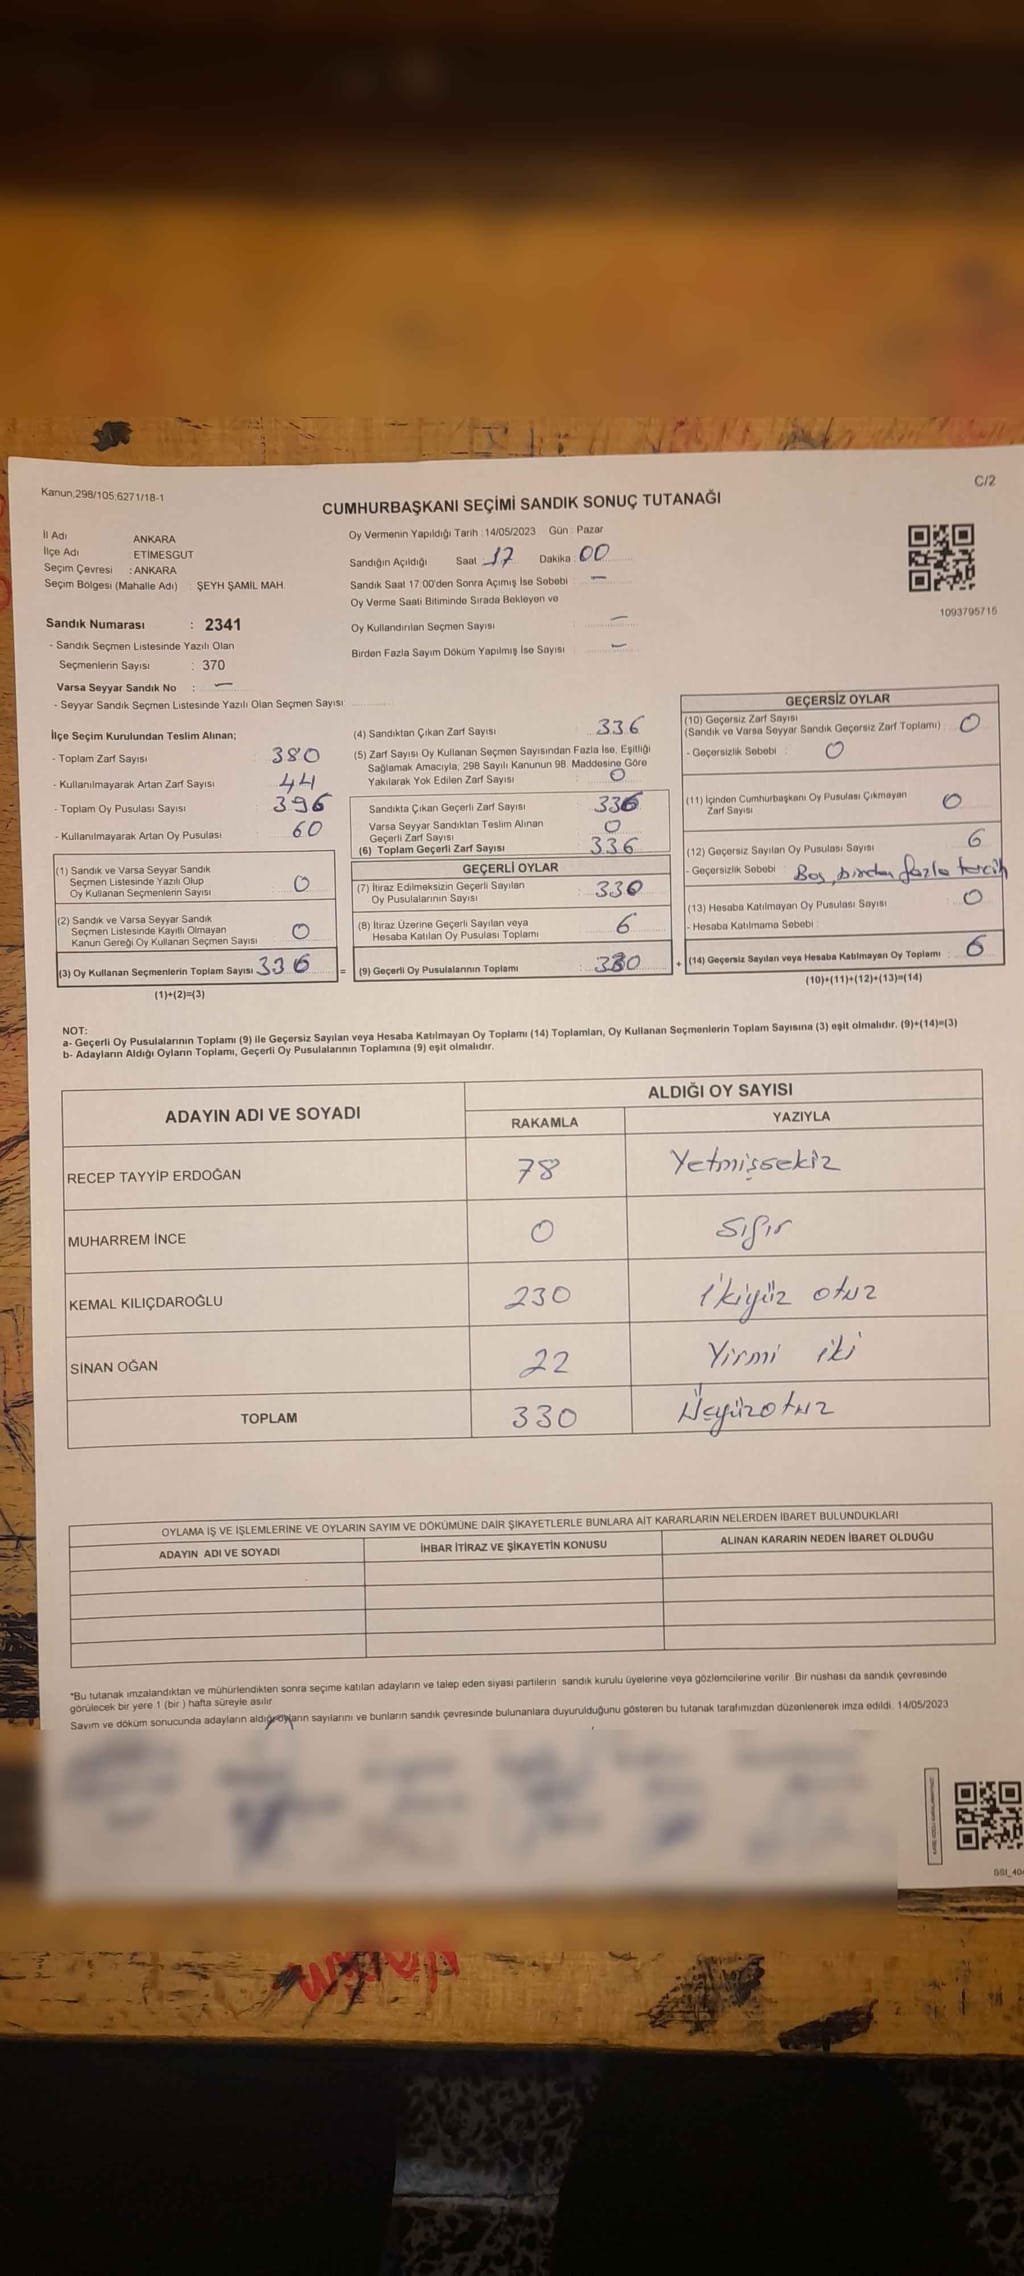 Kanun,298/105;6271/18-1
C/2
CUMHURBAŞKANI SEÇİMİ SANDIK SONUÇ TUTANAĞI
İl Adı ANKARA
İlçe Adı : ETİMESGUT
Seçim Çevresi : ANKARA
Seçim Bölgesi (Mahalle Adı) : ŞEYH ŞAMİL MAH.
Oy Vermenin Yapıldığı Tarih : 14/05/2023 Gün : Pazar
Sandığın Açıldığı Saat : 17 Dakika : 00
Sandık Saat 17:00'den Sonra Açımış İse Sebebi : —
Oy Verme Saati Bitiminde Sırada Bekleyen ve
Oy Kullandırılan Seçmen Sayısı : —
Birden Fazla Sayım Döküm Yapılmış İse Sayısı : —
1093795715
Sandık Numarası : 2341
- Sandık Seçmen Listesinde Yazılı Olan
Seçmenlerin Sayısı : 370
Varsa Seyyar Sandık No : —
- Seyyar Sandık Seçmen Listesinde Yazılı Olan Seçmen Sayısı:
İlçe Seçim Kurulundan Teslim Alınan;
- Toplam Zarf Sayısı : 380
- Kullanılmayarak Artan Zarf Sayısı : 44
- Toplam Oy Pusulası Sayısı : 396
- Kullanılmayarak Artan Oy Pusulası : 60
(1) Sandık ve Varsa Seyyar Sandık
Seçmen Listesinde Yazılı Olup
Oy Kullanan Seçmenlerin Sayısı : 0
(2) Sandık ve Varsa Seyyar Sandık
Seçmen Listesinde Kayıtlı Olmayan
Kanun Gereği Oy Kullanan Seçmen Sayısı : 0
(3) Oy Kullanan Seçmenlerin Toplam Sayısı : 336
(1)+(2)=(3)
(4) Sandıktan Çıkan Zarf Sayısı : 336
(5) Zarf Sayısı Oy Kullanan Seçmen Sayısından Fazla İse, Eşitliği
Sağlamak Amacıyla; 298 Sayılı Kanunun 98. Maddesine Göre
Yakılarak Yok Edilen Zarf Sayısı : 0
Sandıkta Çıkan Geçerli Zarf Sayısı : 336
Varsa Seyyar Sandıktan Teslim Alınan
Geçerli Zarf Sayısı : 0
(6) Toplam Geçerli Zarf Sayısı : 336
GEÇERLİ OYLAR
(7) İtiraz Edilmeksizin Geçerli Sayılan
Oy Pusulalarının Sayısı : 330
(8) İtiraz Üzerine Geçerli Sayılan veya
Hesaba Katılan Oy Pusulası Toplamı : 6
= (9) Geçerli Oy Pusulalarının Toplamı : 330
GEÇERSİZ OYLAR
(10) Geçersiz Zarf Sayısı
(Sandık ve Varsa Seyyar Sandık Geçersiz Zarf Toplamı) : 0
- Geçersizlik Sebebi : 0
(11) İçinden Cumhurbaşkanı Oy Pusulası Çıkmayan
Zarf Sayısı : 0
(12) Geçersiz Sayılan Oy Pusulası Sayısı : 6
- Geçersizlik Sebebi : Boş, birden fazla tercih
(13) Hesaba Katılmayan Oy Pusulası Sayısı : 0
- Hesaba Katılmama Sebebi :
+ (14) Geçersiz Sayılan veya Hesaba Katılmayan Oy Toplamı : 6
(10)+(11)+(12)+(13)=(14)
NOT:
a- Geçerli Oy Pusulalarının Toplamı (9) ile Geçersiz Sayılan veya Hesaba Katılmayan Oy Toplamı (14) Toplamları, Oy Kullanan Seçmenlerin Toplam Sayısına (3) eşit olmalıdır. (9)+(14)=(3)
b- Adayların Aldığı Oyların Toplamı, Geçerli Oy Pusulalarının Toplamına (9) eşit olmalıdır.
ADAYIN ADI VE SOYADI
ALDIĞI OY SAYISI
RAKAMLA YAZIYLA
RECEP TAYYİP ERDOĞAN 78 Yetmişsekiz
MUHARREM İNCE 0 sıfır
KEMAL KILIÇDAROĞLU 230 ikiyüz otuz
SİNAN OĞAN 22 Yirmi iki
TOPLAM 330 Üçyüzotuz
OYLAMA İŞ VE İŞLEMLERİNE VE OYLARIN SAYIM VE DÖKÜMÜNE DAİR ŞİKAYETLERLE BUNLARA AİT KARARLARIN NELERDEN İBARET BULUNDUKLARI
ADAYIN ADI VE SOYADI İHBAR İTİRAZ VE ŞİKAYETİN KONUSU ALINAN KARARIN NEDEN İBARET OLDUĞU
*Bu tutanak imzalandıktan ve mühürlendikten sonra seçime katılan adayların ve talep eden siyasi partilerin sandık kurulu üyelerine veya gözlemcilerine verilir. Bir nüshası da sandık çevresinde
görülecek bir yere 1 (bir) hafta süreyle asılır.
Sayım ve döküm sonucunda adayların aldığı oyların sayılarını ve bunların sandık çevresinde bulunanlara duyurulduğunu gösteren bu tutanak tarafımızdan düzenlenerek imza edildi. 14/05/2023